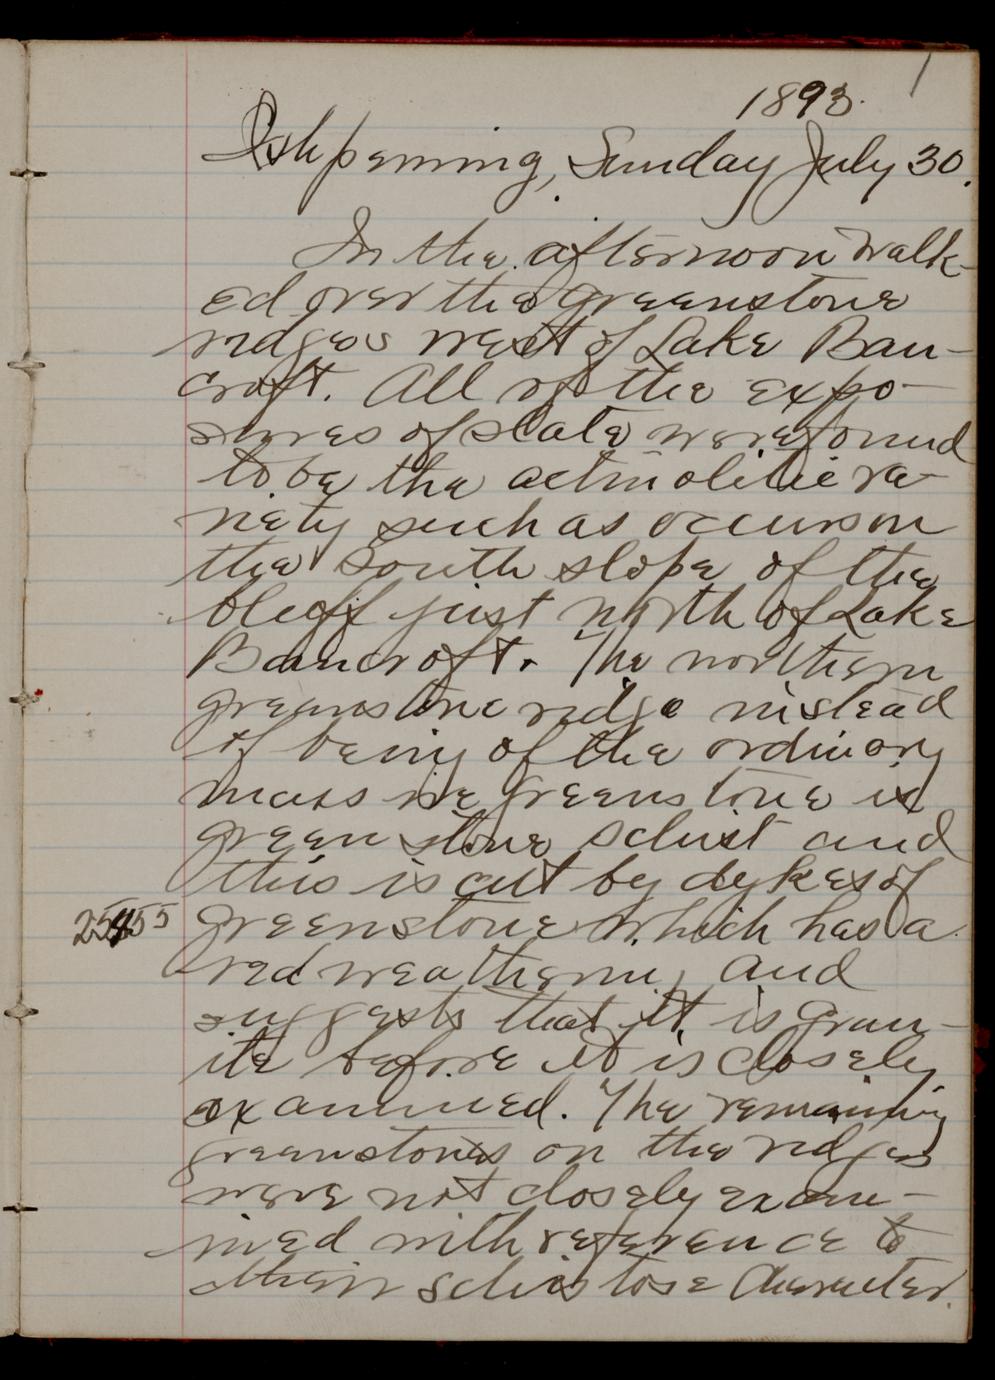 1
1893.
Ishpeming, Sunday July 30.
In the afternoon walk-
ed over the greenstone
ridges west of Lake Ban-
croft. All of the expo-
sures of slate were found
to be the actinolitic va-
riety such as occurs on
the South slope of the
bluff just north of Lake
Bancroft. The northern
greenstone ridge instead
of being of the ordinary
massive greenstone is
greenstone schist and
this is cut by dykes of
25455 greenstone which has a
red weathering and
suggests that it is gran-
ite before it is closely
examined. The remaining
greenstones on the ridges
were not closely exam-
ined with reference to
their schistose character.